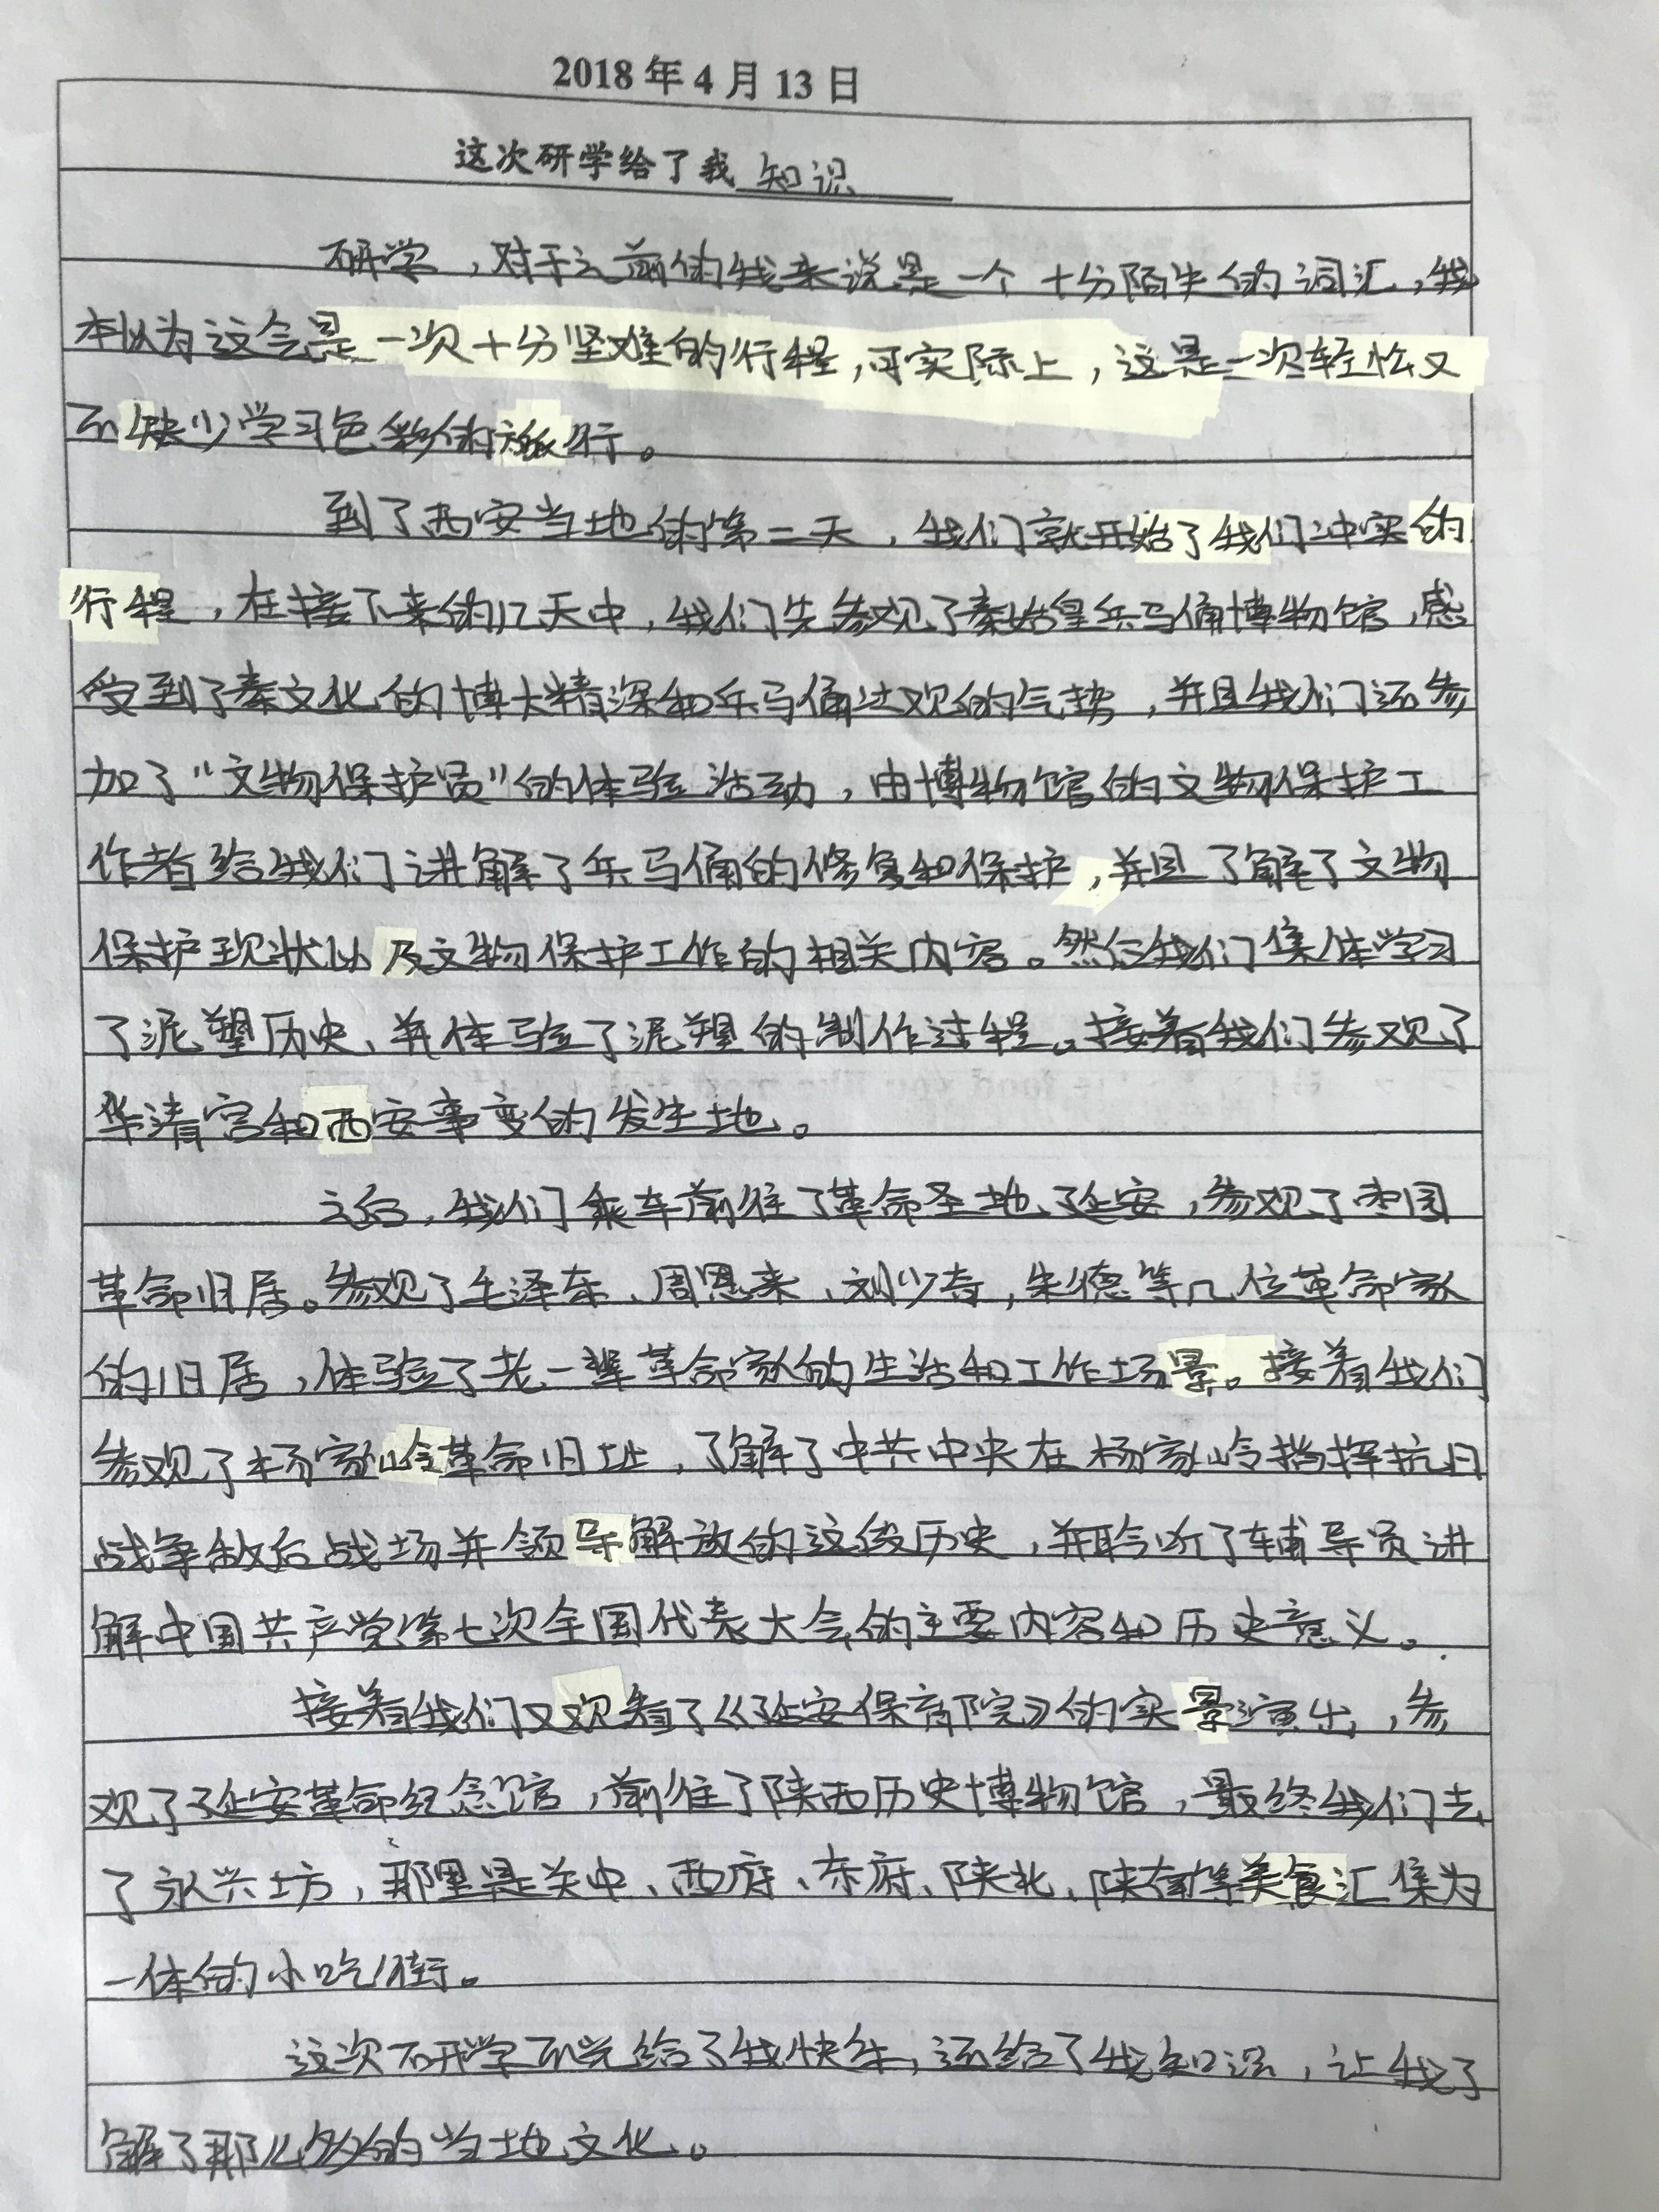 2018年4月13日
这次研学给了我知识
研学，对于之前的我来说是一个十分陌生的词汇，我
本以为这会是一次十分坚难的行程，可实际上，这是一次轻松又
不缺少学习色彩的旅行。
到了西安当地的第二天，我们就开始了我们冲实的
行程，在接下来的几天中，我们先参观了秦始皇兵马俑博物馆，感
受到了秦文化的博大精深和兵马俑过观的气势，并且我们还参
加了“文物保护员”的体验活动，由博物馆的文物保护工
作者给我们讲解了兵马俑的修复和保护，并且了解了文物
保护现状以及文物保护工作的相关内容。然后我们集体学习
了泥塑历史、并体验了泥塑的制作过程。接着我们参观了
华清宫和西安事变的发生地。
之后，我们乘车前往了革命圣地延安，参观了枣园
革命旧居。参观了毛泽东、周恩来、刘少奇，朱德等几位革命家
的旧居，体验了老一辈革命家的生活和工作场景。接着我们
参观了杨家岭革命旧址，了解了中共中央在杨家岭指挥抗日
战争敌后战场并领导解放的这段历史，并聆听了辅导员讲
解中国共产党第七次全国代表大会的主要内容和历史意义。
接着我们又观看了《延安保育院》的实景演出，参
观了延安革命纪念馆，前往了陕西历史博物馆，最终我们去
了永兴坊，那里是关中、西府、东府、陕北、陕南等美食汇集为
一体的小吃街。
这次研学不光给了我快乐，还给了我知识，让我了
解了那么多的当地文化。